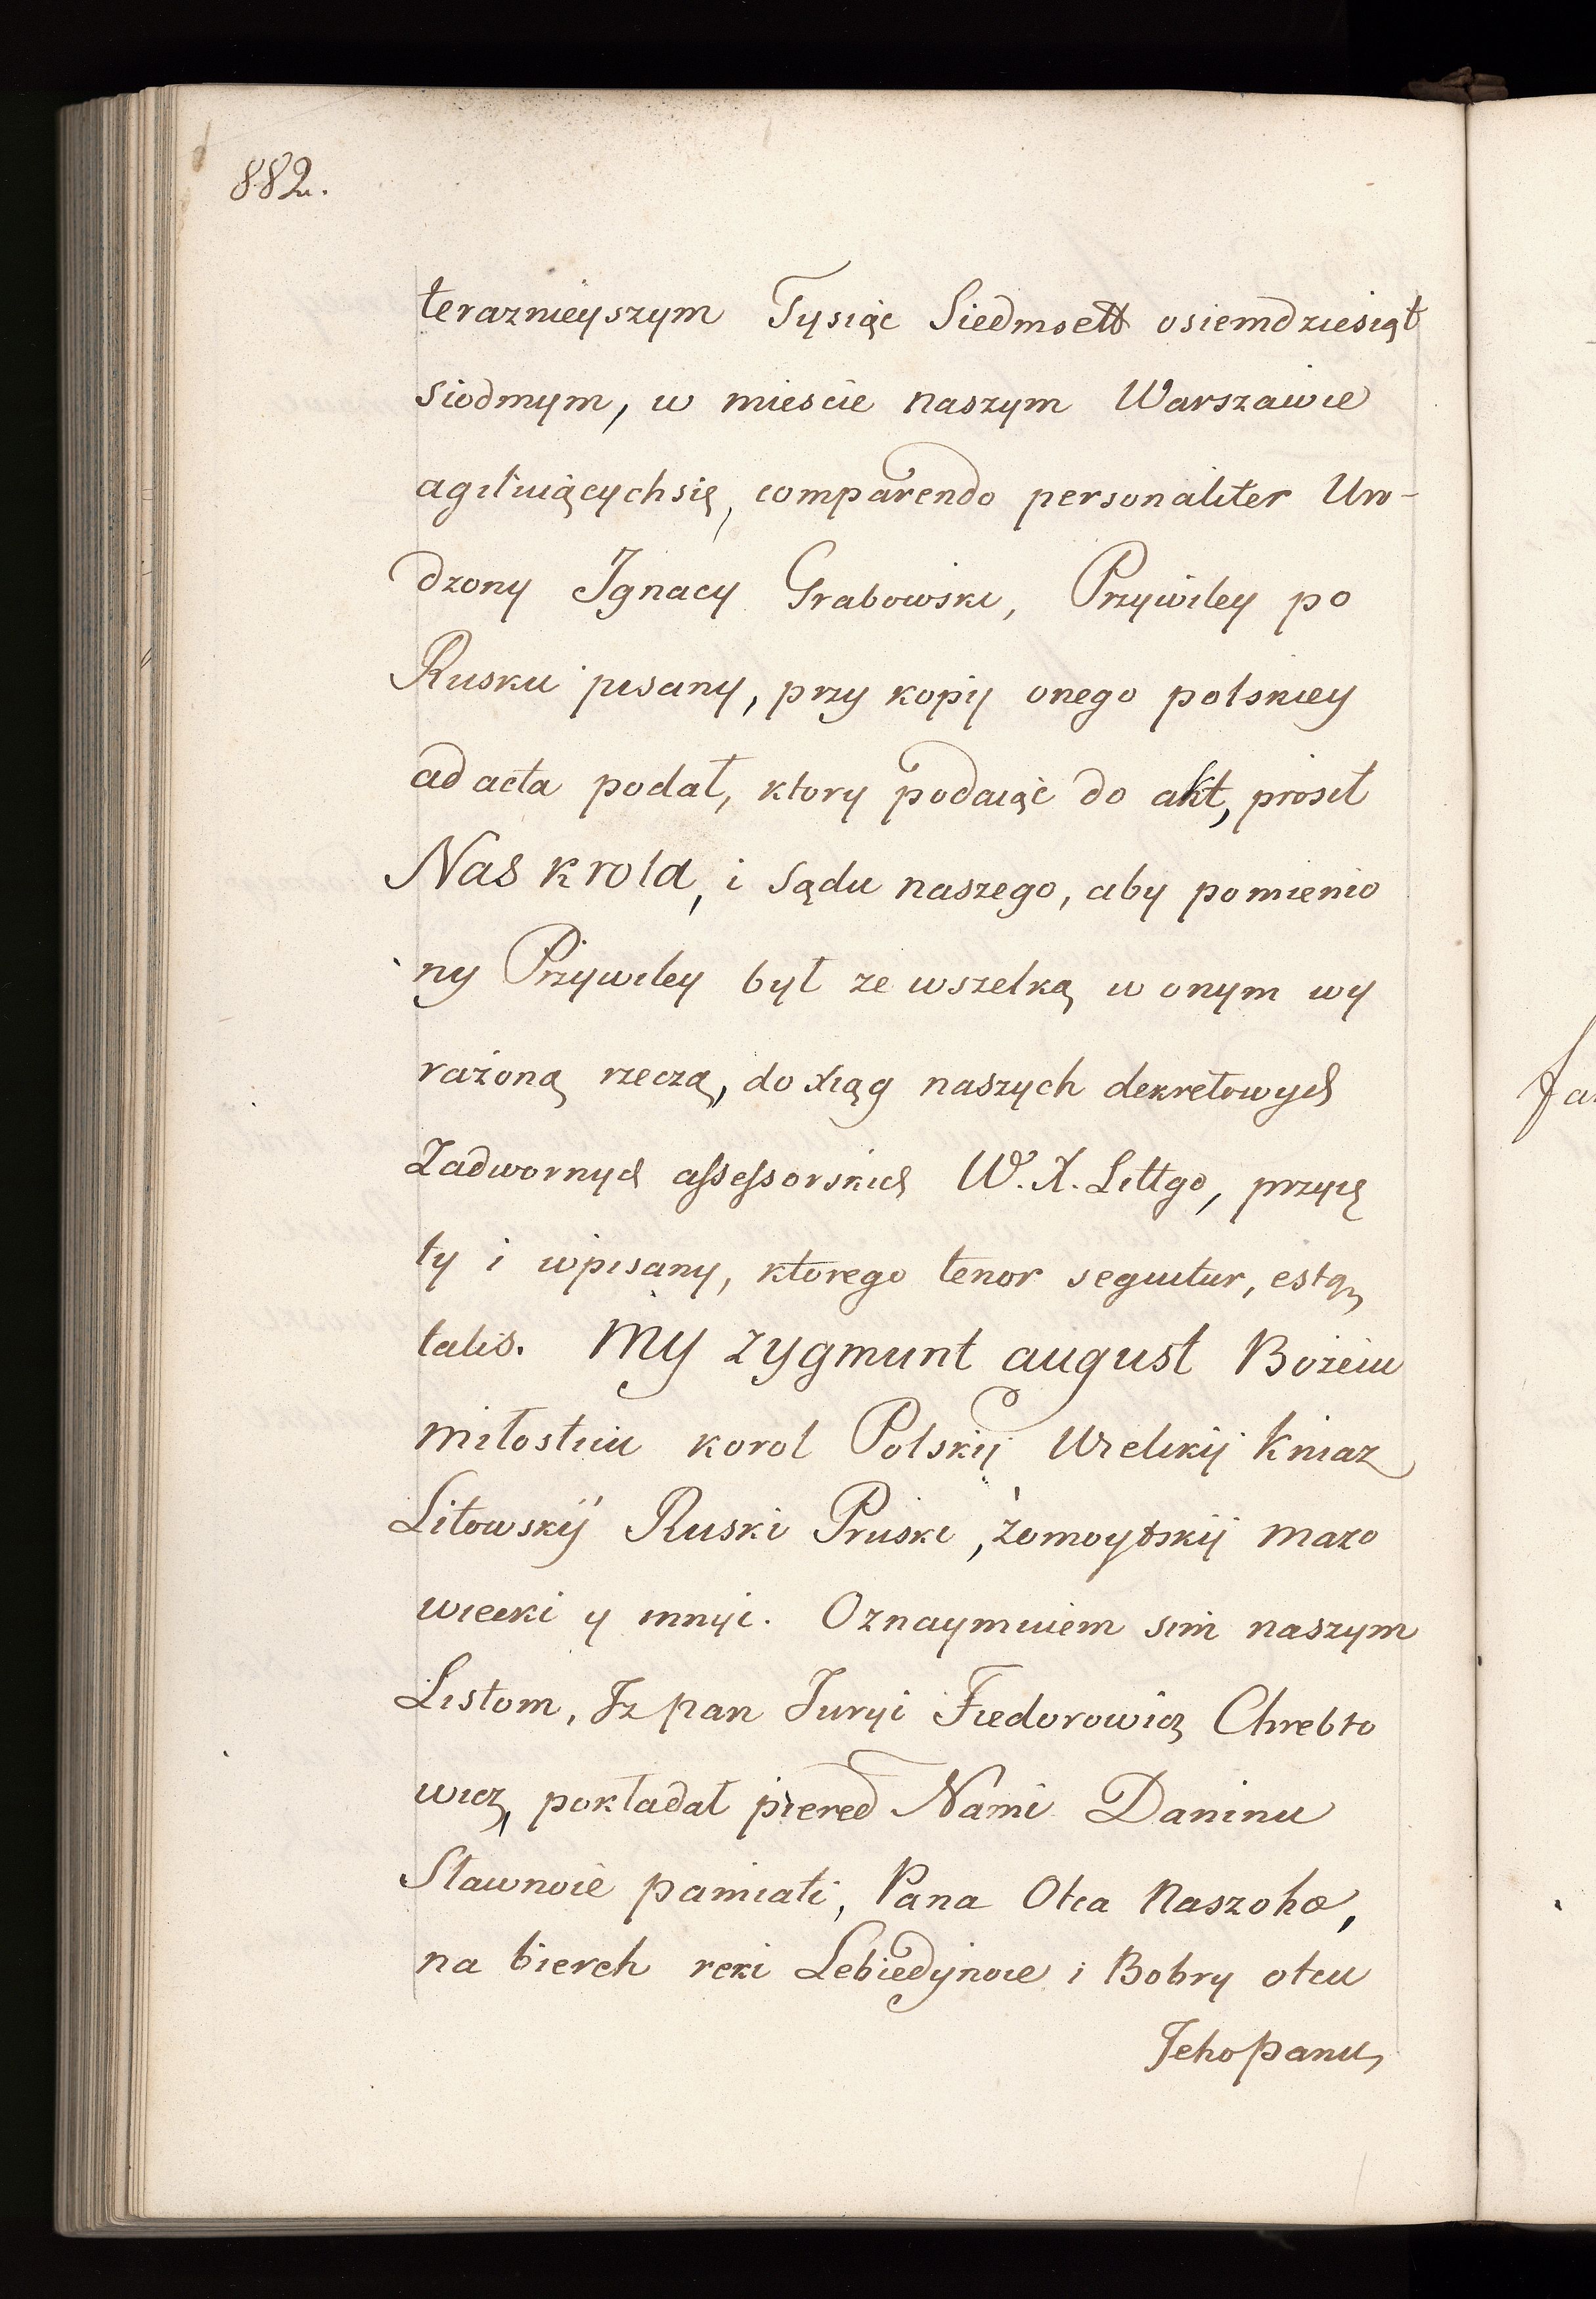 882.
teraznieyszym Tysiąc Siedmsett osiemdziesiąt
siodmym, w miescie naszym Warszawie
agituiącychsię, comparendo personaliter Uro-
dzony Ignacy Grabowski, Przywiley po
Rusku pisany, przy kopij onego polskiey
ad acta podał, ktory podaiąc do akt, prosił
Nas krola, i sądu naszego, aby pomienio
ny Przywiley był ze wszelką w onym wy
rażoną rzeczą, do xiąg naszych dekretowych
Zadwornych assessorskich W. X. Littgo, przyię
ty i wpisany, ktorego tenor sequitur, estq
talis. My Zygmunt august Bożeiu
miłostiu korol Polskij Wielikij Kniaz
Litowskij Ruski Pruski, żomoytskij mazo
wiecki y innyi. Oznaymuiem sim naszym
Listom, Iz pan Juryi Fiedorowicz Chrebto
wicz, pokładał piered Nami Daninu
Sławnoie pamiati, Pana Otca Naszoho,
na bierch reki Lebiedynoie i Bobry otcu
Jeho panu